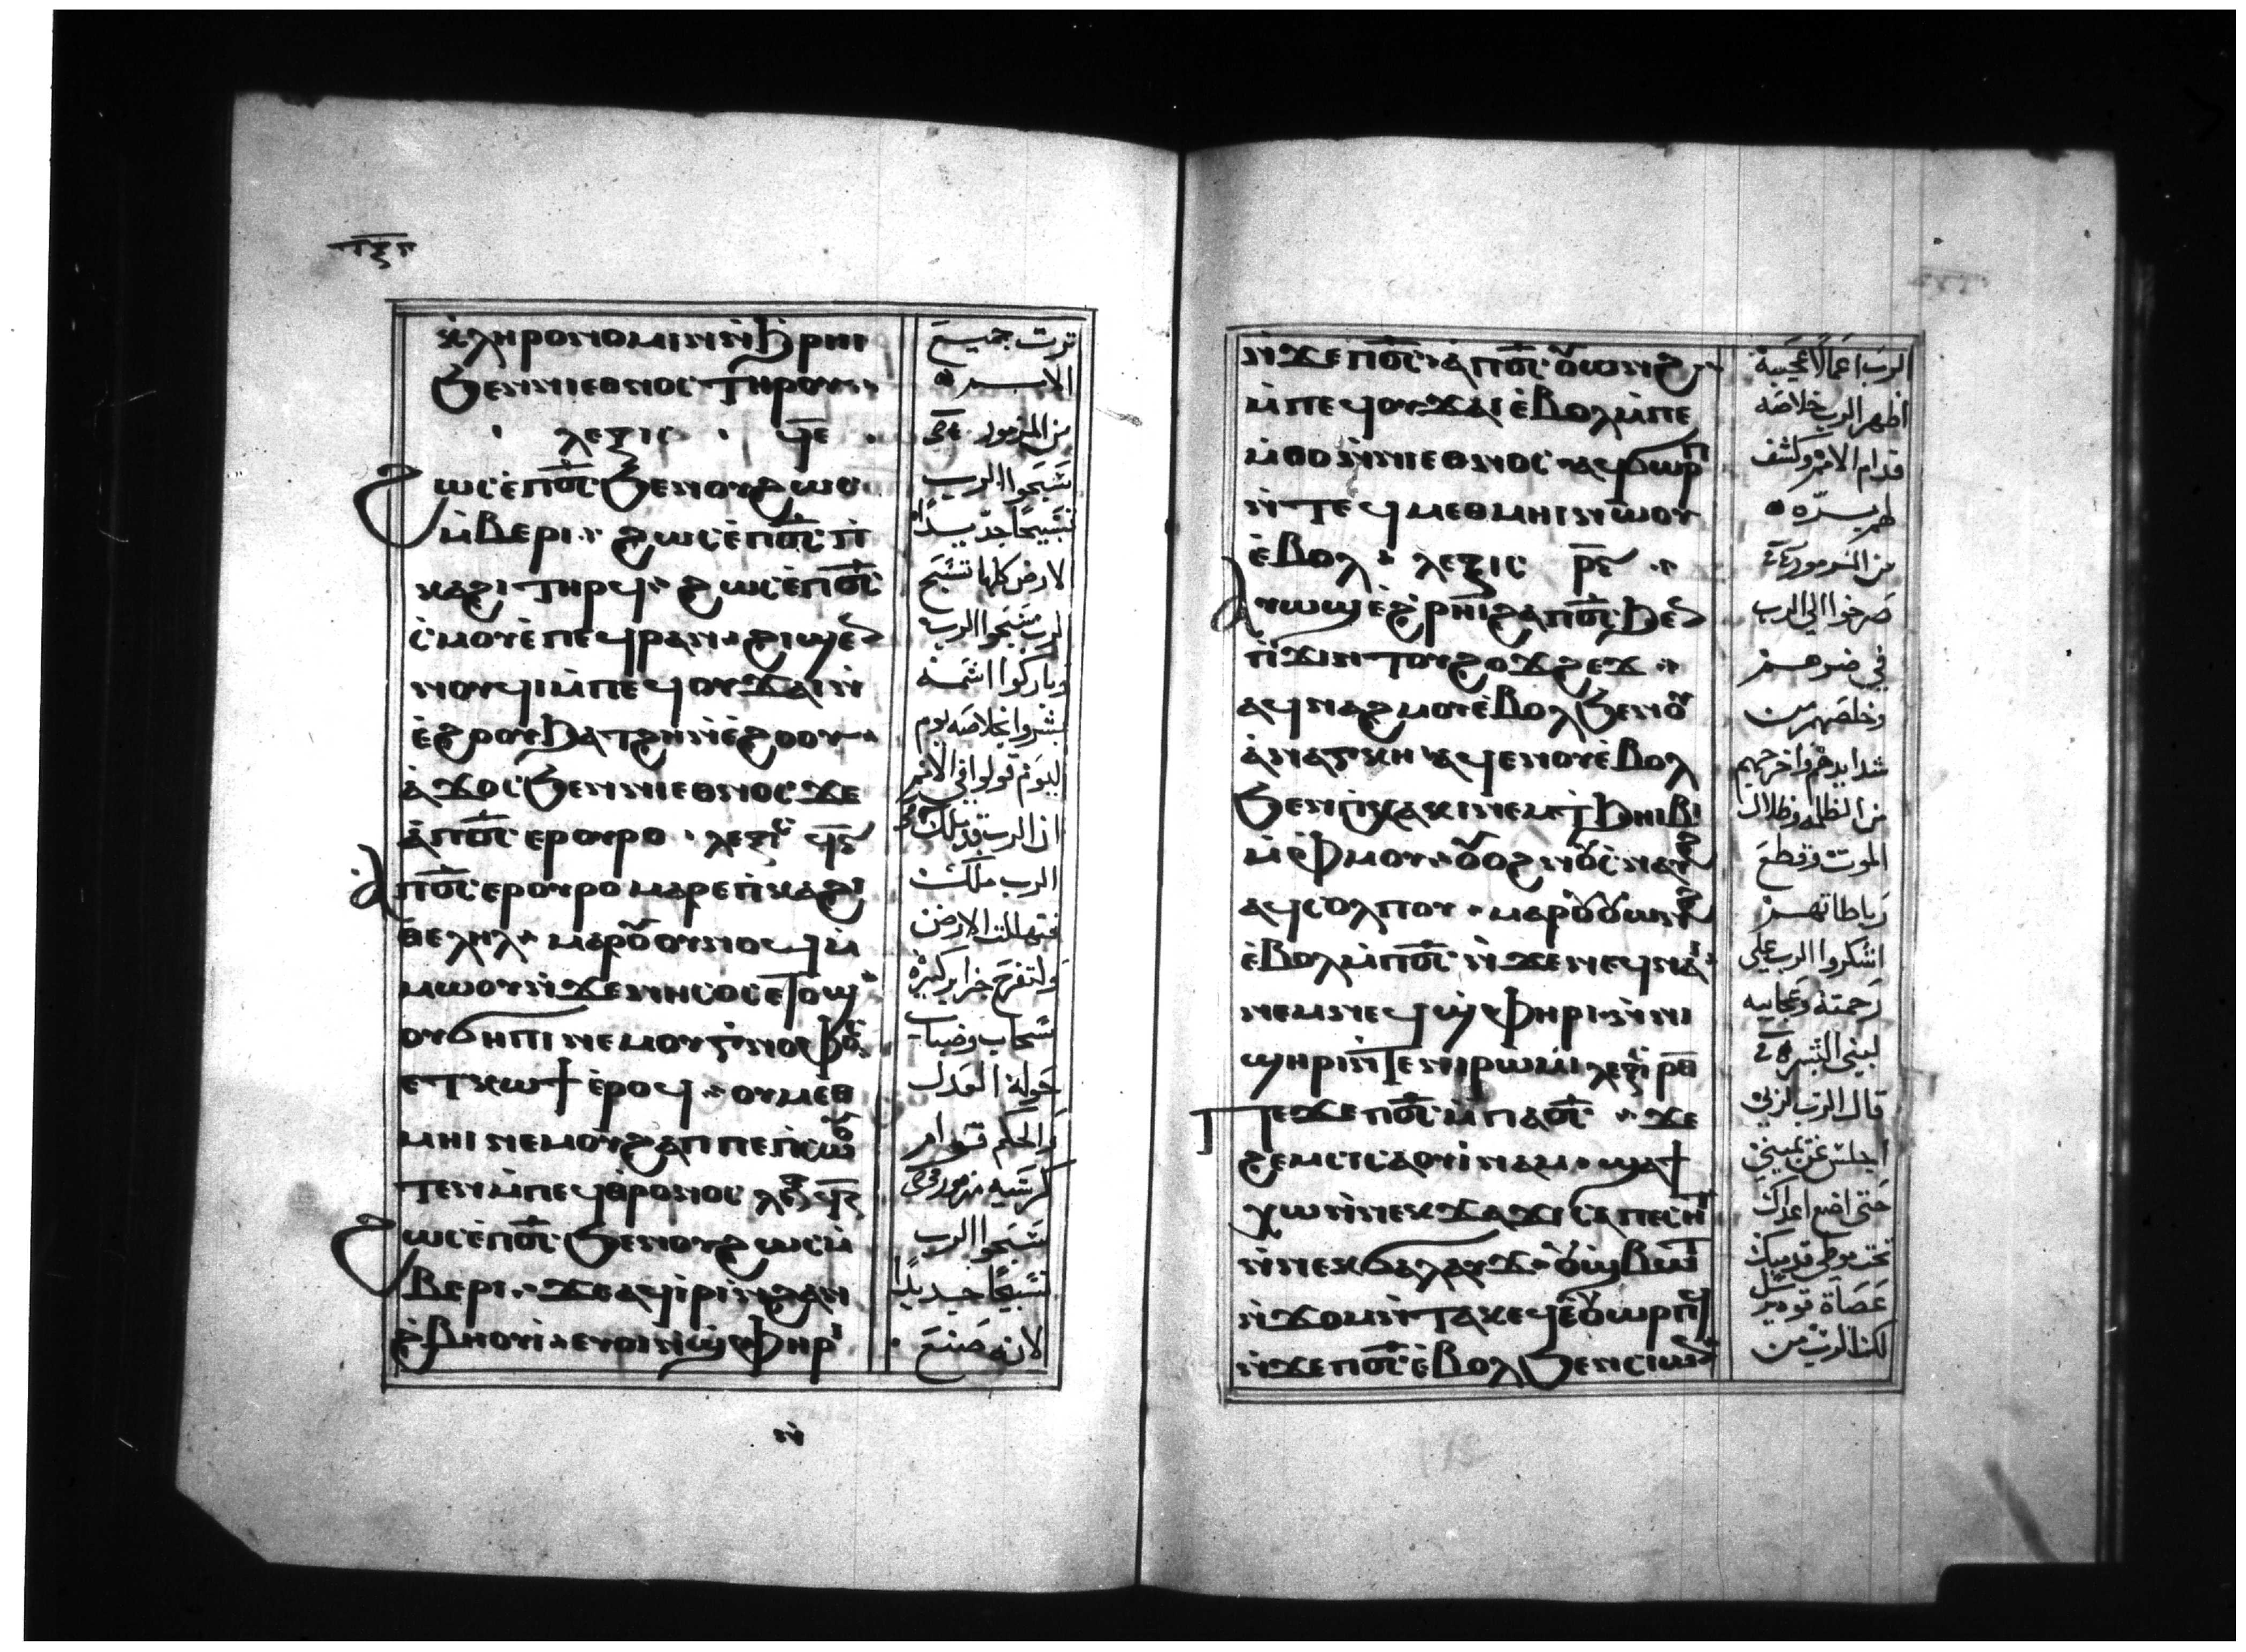 ⲕ̀ⲗⲏⲣⲟⲛⲟⲙⲓⲛ ⲛ̀ϩ̀ⲣⲏⲓ
ϧⲉⲛⲛⲓⲉⲑⲛⲟⲥ ⲧⲏⲣⲟⲩ
ⲗⲉⲝⲓⲥ ϥ̅ⲉ̅
ϩⲱⲥ ⲉ̀ⲡ︦ⲟ̅ⲥ̅ ϧⲉⲛⲟⲩϩⲱⲥ
ⲙ̀ⲃⲉⲣⲓ ϩⲱⲥ ⲉ̀ⲡ︦ⲟ̅ⲥ̅ ⲡ̀
ⲕⲁϩⲓ ⲧⲏⲣϥ ϩⲱⲥ ⲉ̀ⲡ︦ⲟ̅ⲥ̅
ⲥ̀ⲙⲟⲩ ⲉ̀ⲡⲉϥⲣⲁⲛ ϩⲓϣⲉⲛ
ⲛⲟⲩϥⲓ ⲙ̀ⲡⲉϥⲟⲩϫⲁⲓ ⲛ̀
ⲉ̀ϩⲟⲟⲩ ϧⲁⲧϩⲏ ⲛ̀ⲉ̀ϩⲟⲟⲩ
ⲁ̀ϫⲟⲥ ϧⲉⲛⲛⲓⲉⲑⲛⲟⲥ ϫⲉ
ⲁ̀ⲡ︦ⲟ̅ⲥ̅ ⲉⲣⲟⲩⲣⲟ ⲗⲉⲝⲓⲥ ϥ̅ⲋ̅
ⲁⲡ︦ⲟ̅ⲥ̅ ⲉⲣⲟⲩⲣⲟ ⲙⲁⲣⲉⲡ̀ⲕⲁϩⲓ
ⲑⲉⲗⲏⲗ ⲙⲁⲣⲟⲩⲟⲩⲛⲟϥ ⲙ̀
ⲙⲱⲟⲩ ⲛ̀ϫⲉⲛⲓⲛⲏⲥⲟⲥ ⲉⲧⲟϣ
ⲟⲩϭⲏⲡⲓ ⲛⲉⲙⲟⲩⲅ̀ⲛⲟⲫⲟⲥ
ⲉⲧⲕⲱϯ ⲉ̀ⲣⲟϥ ⲟⲩⲙⲉⲑ
ⲙⲏⲓ ⲛⲉⲙⲟⲩϩⲁⲡ ⲡⲉⲡ̀ⲥⲱⲟⲩ
ⲧⲉⲛ ⲙ̀ⲡⲉϥⲑ̀ⲣⲟⲛⲟⲥ ⲗⲉⲝ ϥ̅ⲍ̅
ϩⲱⲥ ⲉ̀ⲡ︦ⲟ̅ⲥ̅ ϧⲉⲛⲟⲩϩⲱⲥ ⲙ̀
ⲃⲉⲣⲓ ϫⲉ ⲁϥⲓ̀ⲣⲓ ⲛ̀ϩⲁⲛ
ϩ̀ⲃⲏⲟⲩⲓ̀ ⲉⲩⲟⲓ ⲛ̀ϣ̀ⲫⲏⲣⲓ
ترث جميع
الامم
من المزمور
سبحوا الرب
تسبيحًا جديدًا
لارض كلها تسبح
الرب سبحوا الرب
وباركوا اسمه
بشروا بخلاصه يوم
ليوم قولوا في الامم
ان الرب قد ملك
الرب ملك
فتتهلل الارض
ولتفرح جزاير كثيرة
سحاب وضباب
حوله العدل
والحكم قوام
كرسيه مزمور
سبحوا الرب
تسبيحًا جديدًا
لانه صنع
ⲛ̀
ⲛ̀ϫⲉⲡ︦ⲟ̅ⲥ̅ ⲁ̀ⲡ︦ⲟ̅ⲥ̅ ⲟⲩⲱⲛϩ
ⲙ̀ⲡⲉϥⲟⲩϫⲁⲓ ⲉ̀ⲃⲟⲗ ⲙ̀ⲡⲉ
ⲙ̀ⲑⲟ ⲛ̀ⲛⲓⲉⲑⲛⲟⲥ ⲁϥϭⲱⲣⲡ
ⲛ̀ⲧⲉϥⲙⲉⲑⲙⲏⲓ ⲛⲱⲟⲩ
ⲉ̀ⲃⲟⲗ ⲗⲉⲝⲓⲥ ⲣ̅ⲋ̅
ⲁⲩⲱϣ ⲉ̀ϩ̀ⲣⲏⲓ ϩⲁⲡ︦ⲟ̅ⲥ̅ ϧⲉⲛ
ⲡ̀ϫⲓⲛⲧⲟⲩϩⲟϫϩⲉϫ
ⲁϥⲛⲁϩⲙⲟⲩ ⲉ̀ⲃⲟⲗ ϧⲉⲛⲟⲩ
ⲁ̀ⲛⲁⲅⲕⲏ ⲁϥⲉⲛⲟⲩ ⲉ̀ⲃⲟⲗ
ϧⲉⲛⲡ̀ⲭⲁⲕⲓ ⲛⲉⲙⲧ̀ϧⲏⲓⲃⲓ
ⲙ̀ⲫ̀ⲙⲟⲩ ⲟⲩⲟϩ ⲛⲟⲩⲥⲛⲁⲩϩ
ⲁϥⲥⲟⲗⲡⲟⲩ ⲙⲁⲣⲟⲩⲟⲩⲱⲛϩ
ⲉ̀ⲃⲟⲗ ⲙ̀ⲡ︦ⲟ̅ⲥ̅ ⲛ̀ϫⲉⲛⲉϥⲛⲁⲓ
ⲛⲉⲙⲛⲉϥϣ̀ⲫⲏⲣⲓ ⲛ̀ⲛⲓ
ϣⲏⲣⲓ ⲛ̀ⲧⲉⲛⲓⲣⲱⲙⲓ ⲗⲉⲝⲓⲥ ⲣ̅ⲑ̅
ⲡⲉϫⲉⲡ︦ⲟ̅ⲥ̅ ⲙ̀ⲡⲁⲟ̅ⲥ̅ ϫⲉ
ϩⲉⲙⲥⲓ ⲥⲁⲟⲩⲓ̀ⲛⲁⲙ ϣⲁϯ
ⲭⲱ ⲛ̀ⲛⲉⲕϫⲁϫⲓ ⲥⲁⲡⲉⲥⲏⲧ
ⲛ̀ⲛⲉⲕϭⲁⲗⲁⲩϫ ⲟⲩϣ̀ⲃⲱⲧ
ⲛ̀ϫⲟⲙ ⲛ̀ⲧⲁⲕ ⲉϥⲉ̀ⲟⲩⲱⲣⲡϥ
ⲛ̀ϫⲉⲡ︦ⲟ̅ⲥ̅ ⲉ̀ⲃⲟⲗ ϧⲉⲛⲥⲓⲱⲛ
الرب اعمالًا عجيبة
اظهر الرب خلاصه
قدام الامم وكشف
لهم بره
من المزمور
صرخوا الي الرب
في ضرهم
وخلصهم من
شدايدهم واخرجهم
من الظلمه وظلال
الموت وقطع
رباطاتهم
اشكروا الرب علي
رحمته وعجايبه
لبني البشر
قال الرب لربي
اجلس عن يميني
حتي اضع اعداك
تحت موطي قدميك
عصاة قوه يرسل
لك الرب من